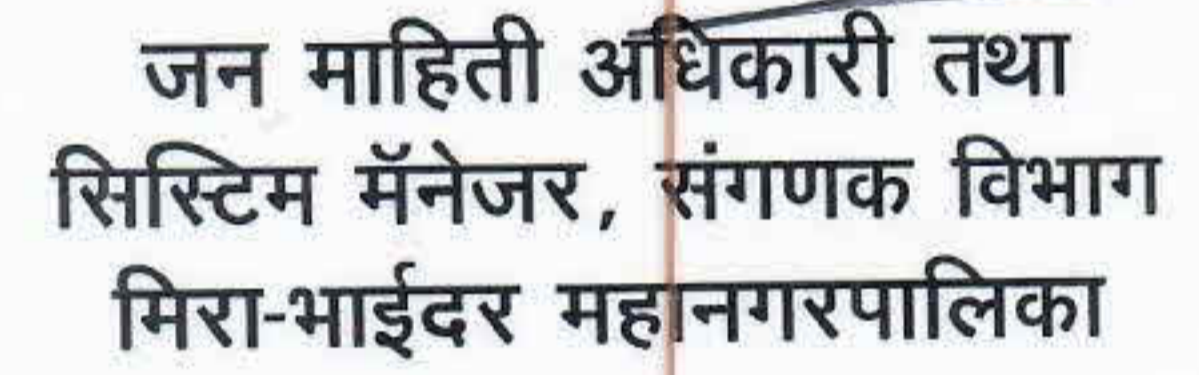 जन माहिती अधिकारी तथा
सिस्टिम मॅनेजर, संगणक विभाग
मिरा-भाईंदर महानगरपालिका